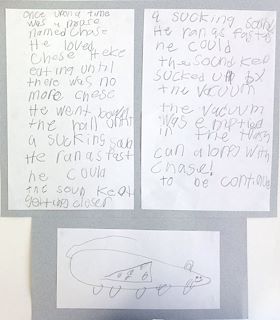 once upon a time
was a mouse
named Chase
He loved
Chese Heke
eating until
there was no
more chese
He went bown
the hall until
a sucking soub
He ran as fast
he could
the soun kept
getting closer
a sucking
He ran as faste
he could
the sound kep
sucked up by
the vacuum
the vacuum
was emptied
in the trash
can along with
Chase!
to be continue